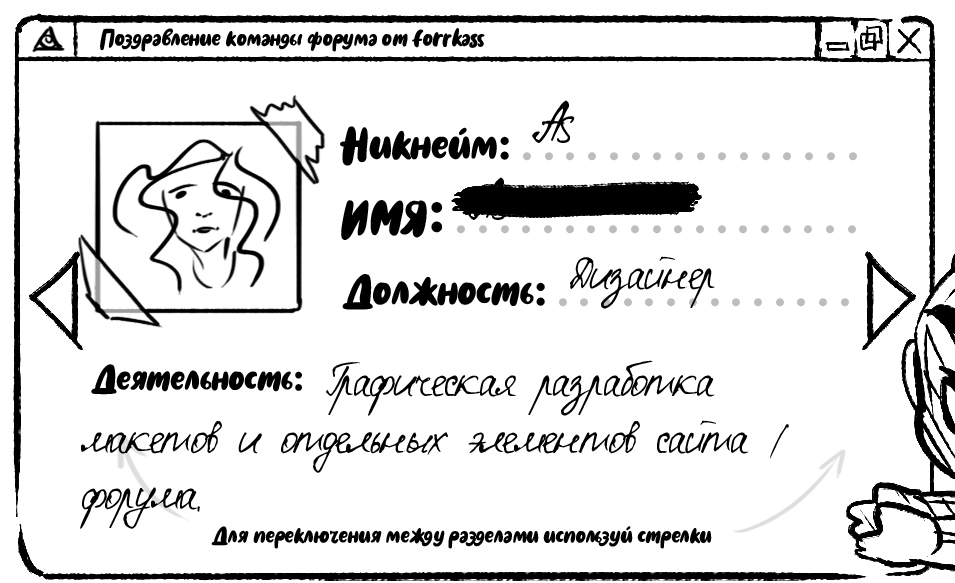 Поздравление команды форума от forrkass
Никнейм: As
ИМЯ:
Должность: Дизайнер
Деятельность: Графическая разработка
макетов и отдельных элементов сайта /
форума.
Для переключения между разделами используй стрелки